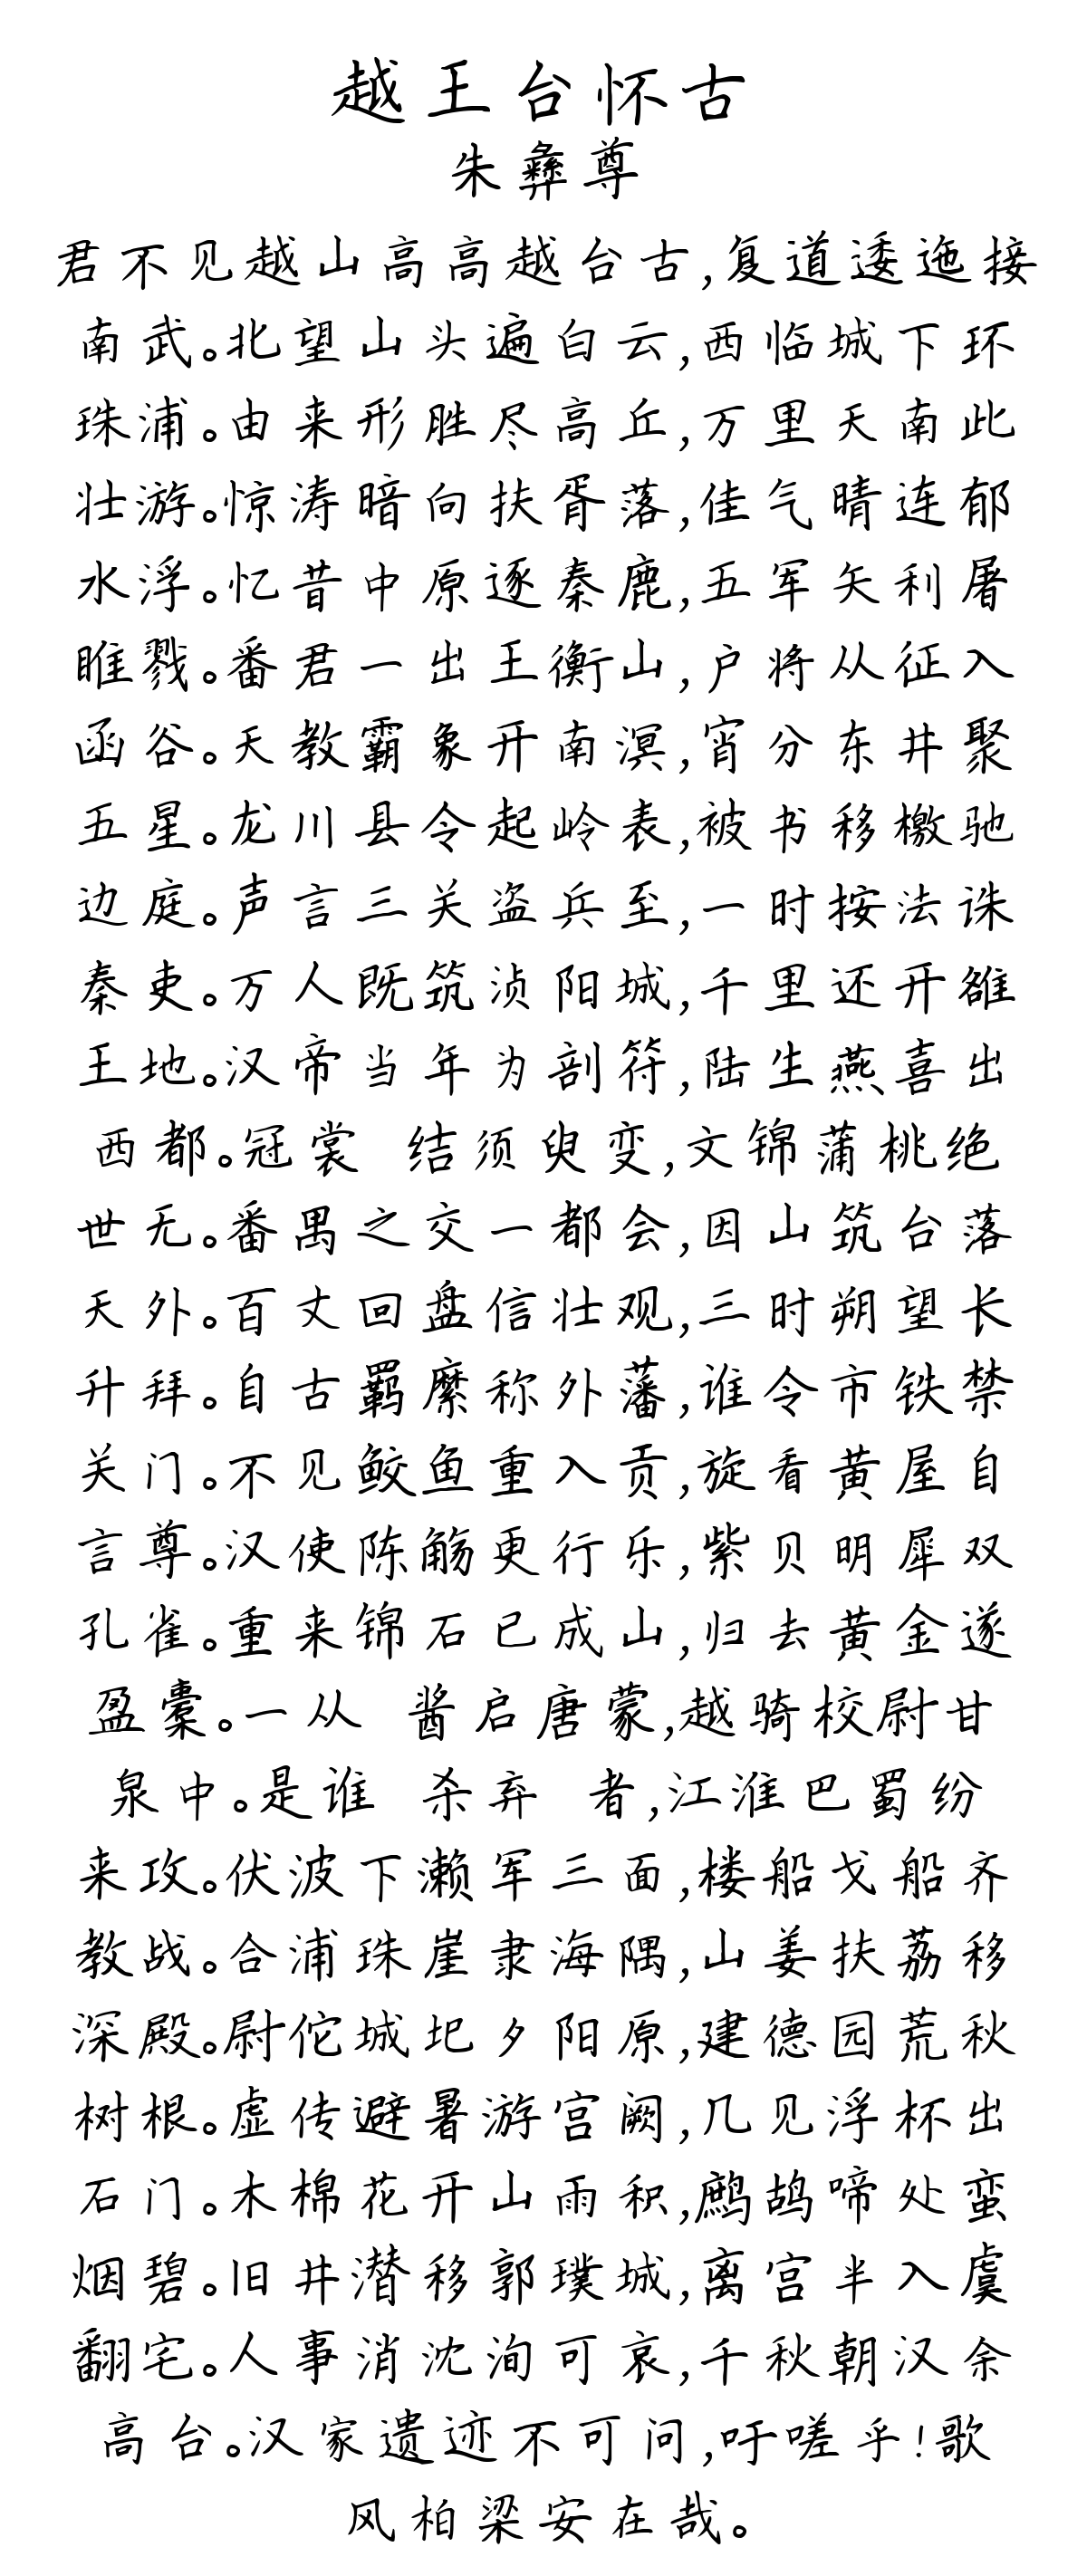 越王台怀古
朱彝尊
君不见越山高高越台古,复道逶迤接
南武。北望山头遍白云,西临城下环
珠浦。由来形胜尽高丘,万里天南此
壮游。惊涛暗向扶胥落,佳气晴连郁
水浮。忆昔中原逐秦鹿,五军矢利屠
睢戮。番君一出王衡山,户将从征入
函谷。天教霸象开南溟,宵分东井聚
五星。龙川县令起岭表,被书移檄驰
边庭。声言三关盗兵至,一时按法诛
秦吏。万人既筑浈阳城,千里还开雒
王地。汉帝当年为剖符,陆生燕喜出
西都。冠裳 结须臾变,文锦蒲桃绝
世无。番禺之交一都会,因山筑台落
天外。百丈回盘信壮观,三时朔望长
升拜。自古羁縻称外藩,谁令市铁禁
关门。不见鲛鱼重入贡,旋看黄屋自
言尊。汉使陈觞更行乐,紫贝明犀双
孔雀。重来锦石已成山,归去黄金遂
盈橐。一从 酱启唐蒙,越骑校尉甘
泉中。是谁 杀弃 者,江淮巴蜀纷
来攻。伏波下濑军三面,楼船戈船齐
教战。合浦珠崖隶海隅,山姜扶荔移
深殿。尉佗城圮夕阳原,建德园荒秋
树根。虚传避暑游宫阙,几见浮杯出
石门。木棉花开山雨积,鹧鸪啼处蛮
烟碧。旧井潜移郭璞城,离宫半入虞
翻宅。人事消沈洵可哀,千秋朝汉余
高台。汉家遗迹不可问,吁嗟乎!歌
风柏梁安在哉。